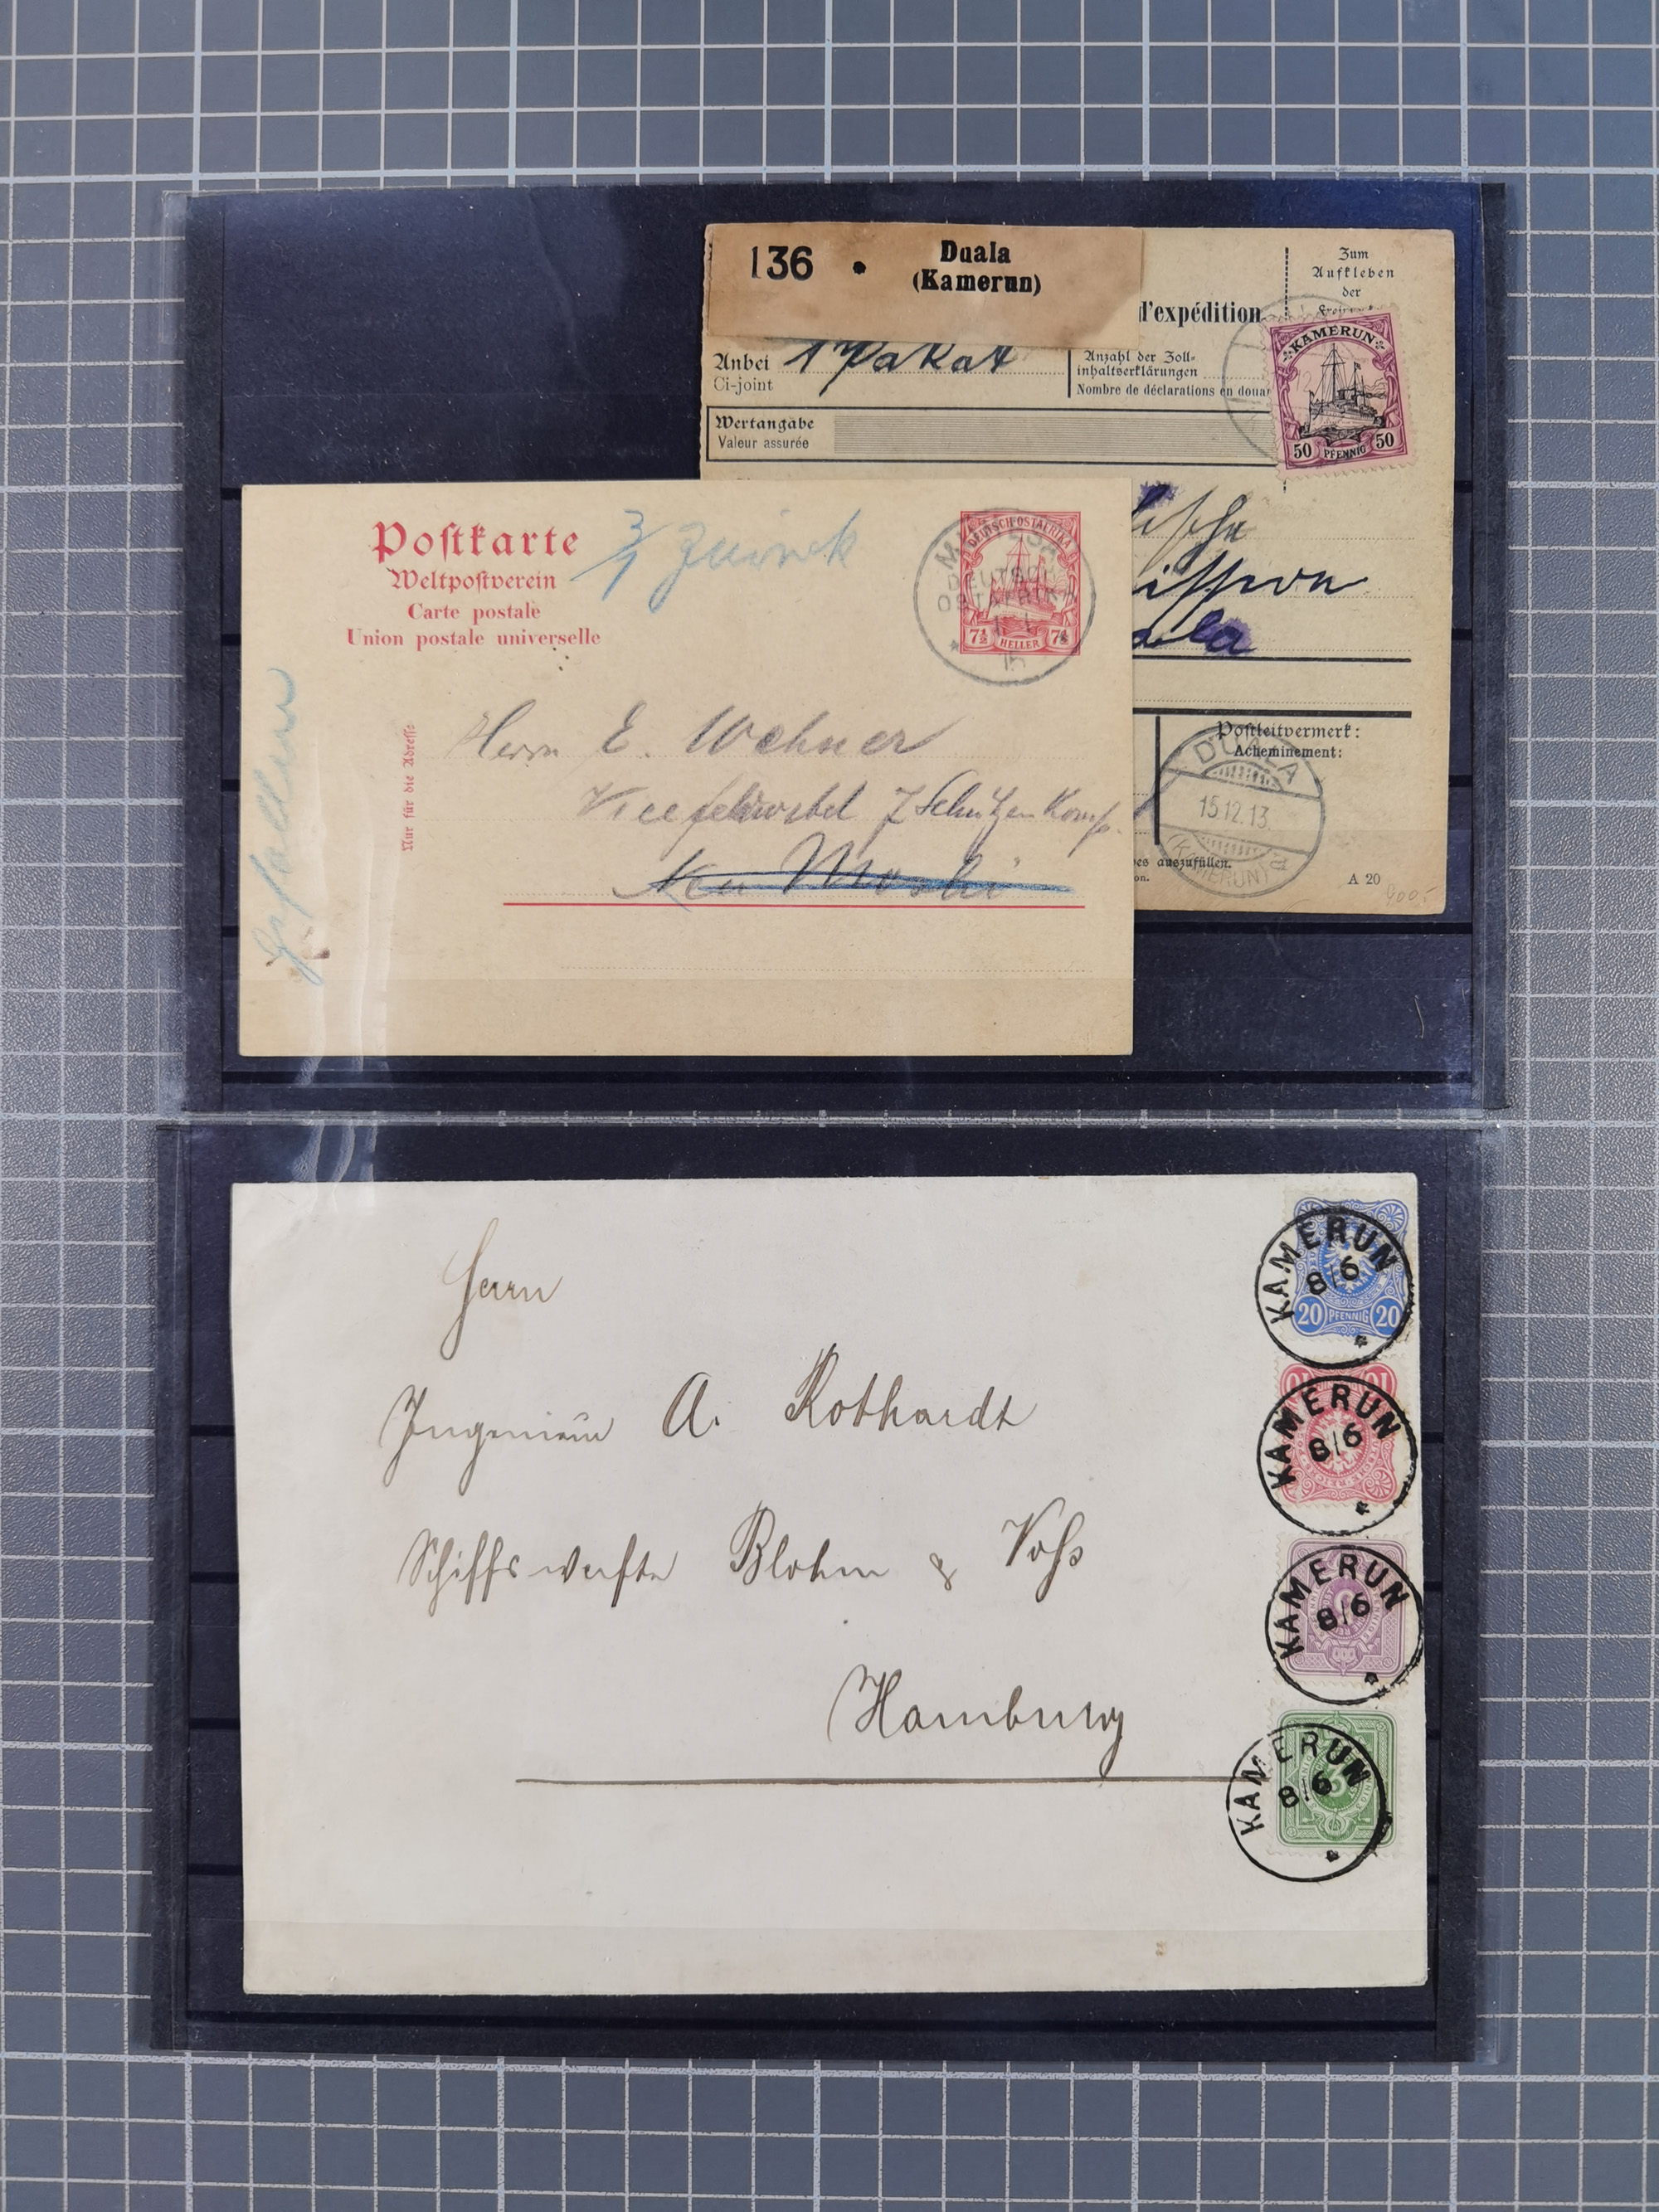 136 • Duala
(Kamerun)
d'expédition
Zum
Aufkleben
der
Anbei 1 Paket
Ci-joint
Anzahl der Zoll-
inhaltserklärungen
Nombre de déclarations en douane
KAMERUN
50 PFENNIG 50
Wertangabe
Valeur assurée
ission
Postleitvermerk:
Acheminement:
DUALA
15.12.13.
(KAMERUN)
es auszufüllen.
on.
A 20
900.-
Postkarte
Weltpostverein
Carte postale
Union postale universelle
3/1 Zurück
DEUTSCH-OSTAFRIKA
7½ HELLER 7½
DEUTSCH-
OSTAFRIKA
Nur für die Adresse
Herrn E. Wehner
Vicefeldwebel 7 Schützen Komp.
Neu Moschi
Herrn
Ingenieur A. Rothardt
Schiffswerfte Blohm & Voß
Hamburg
KAMERUN
8/6
20 PFENNIG 20
KAMERUN
8/6
10 10
KAMERUN
8/6
KAMERUN
8/6